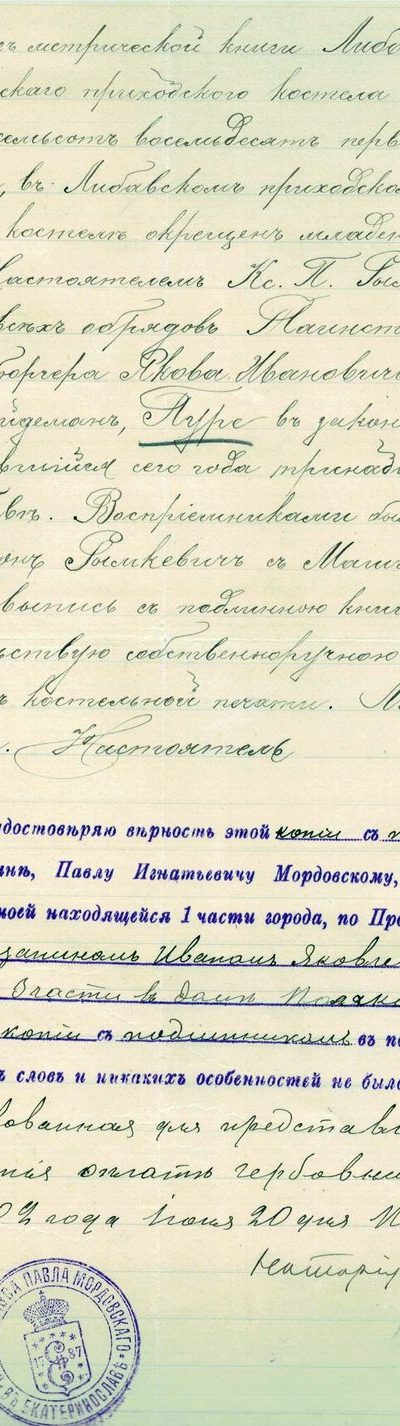 метрической книги Либа
скаго приходского костела
емьсотъ восемьдесятъ перв
, въ Либавскомъ приходско
костелѣ окрещенъ младен
астоятелемъ Кс. П. Рым
вскихъ обрядовъ Таинст
Якова Ивановича
йдеманъ, Пурс въ закон
вшийся сего года тринад
вѣ. Воспріемниками бы
онъ Рымкевичъ съ
выпись съ подлинною книг
ьствую собственноручною
ъ костельной печати.
. Настоятель
достовѣряю вѣрность этой копіи съ
инѣ, Павлу Игнатьевичу Мордовскому,
моей находящейся 1 части города, по Про
Иваномъ Яковле
части въ домѣ
копіи съ подлинникомъ въ по
ъ словъ и никакихъ особенностей не было
ованная для представл
оплатѣ гербовы
02 года Іюня 20 дня
Нотарі
СА ПАВЛА МОРДОВСКАГО
ВЪ ЕКАТЕРИНОСЛАВѢ
17 87